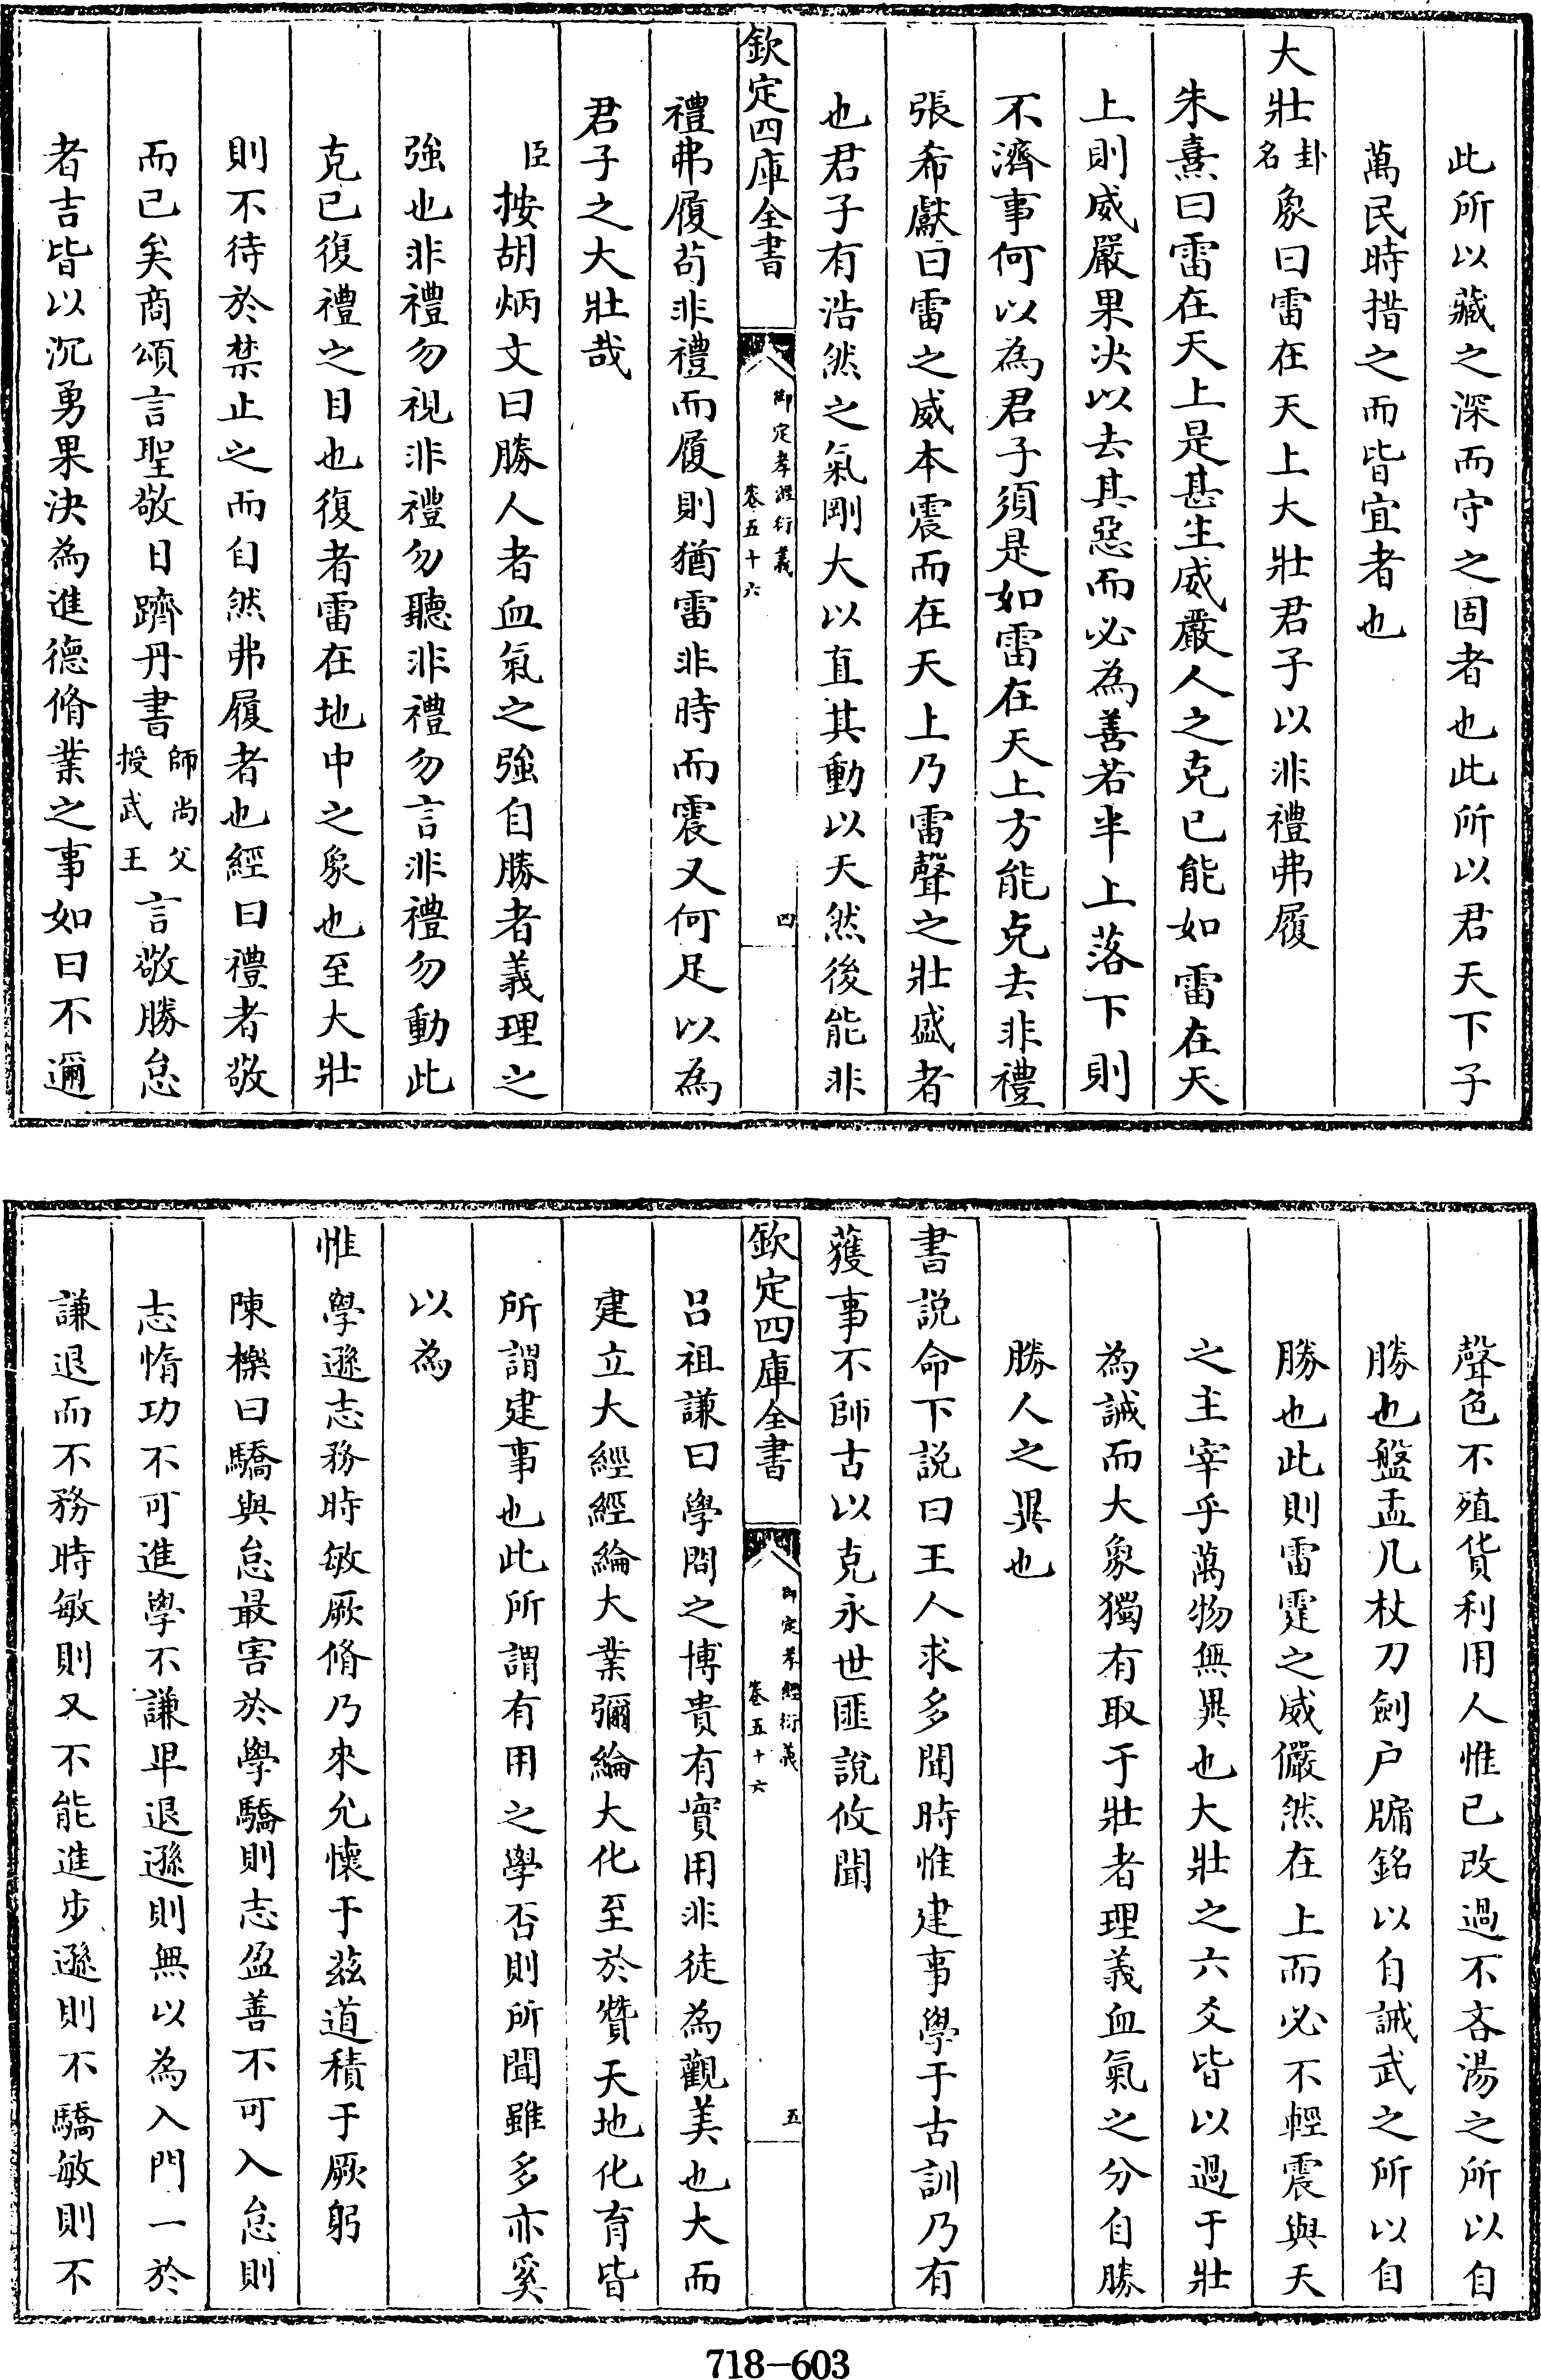 此所以藏之深而守之固者也此所以君天下子
萬民時措之而皆宜者也
大壯卦名象曰雷在天上大壯君子以非禮弗履
朱熹曰雷在天上是甚生威嚴人之克已能如雷在天
上則威嚴果决以去其惡而必為善若半上落下則
不濟事何以為君子須是如雷在天上方能克去非禮
張希獻曰雷之威本震而在天上乃雷聲之壯盛者
也君子有浩然之氣剛大以直其動以天然後能非
欽定四庫全書 御定孝經衍義 卷五十六 四
禮弗履茍非禮而履則猶雷非時而震又何足以為
君子之大壯哉
臣按胡炳文曰勝人者血氣之強自勝者義理之
強也非禮勿視非禮勿聽非禮勿言非禮勿動此
克已復禮之目也復者雷在地中之象也至大壯
則不待於禁止之而自然弗履者也經曰禮者敬
而已矣商頌言聖敬日躋丹書師尚父授武王言敬勝怠
者吉皆以沉勇果決為進德脩業之事如曰不邇
聲色不殖貨利用人惟已改過不吝湯之所以自
勝也盤盂几杖刀劍户牖銘以自誡武之所以自
勝也此則雷霆之威儼然在上而必不輕震與天
之主宰乎萬物無異也大壯之六爻皆以過于壯
為誡而大象獨有取于壯者理義血氣之分自勝
勝人之異也
書説命下説曰王人求多聞時惟建事學于古訓乃有
獲事不師古以克永世匪説攸聞
欽定四庫全書 御定孝經衍義 卷五十六 五
吕祖謙曰學問之博貴有實用非徒為觀美也大而
建立大經經綸大業彌綸大化至於贊天地化育皆
所謂建事也此所謂有用之學否則所聞雖多亦奚
以為
惟學遜志務時敏厥脩乃來允懷于兹道積于厥躬
陳櫟曰驕與怠最害於學驕則志盈善不可入怠則
志惰功不可進學不謙卑退遜則無以為入門一於
謙退而不務時敏則又不能進步遜則不驕敏則不
718-603